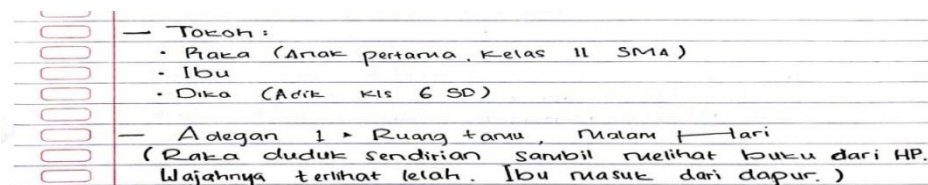 — Tokoh :
· Raka (Anak pertama, Kelas 11 SMA)
· Ibu
· Dika (Adik kls 6 SD)
— Adegan 1 • Ruang tamu, Malam Hari
(Raka duduk sendirian sambil melihat buku dari HP.
Wajahnya terlihat lelah. Ibu masuk dari dapur.)